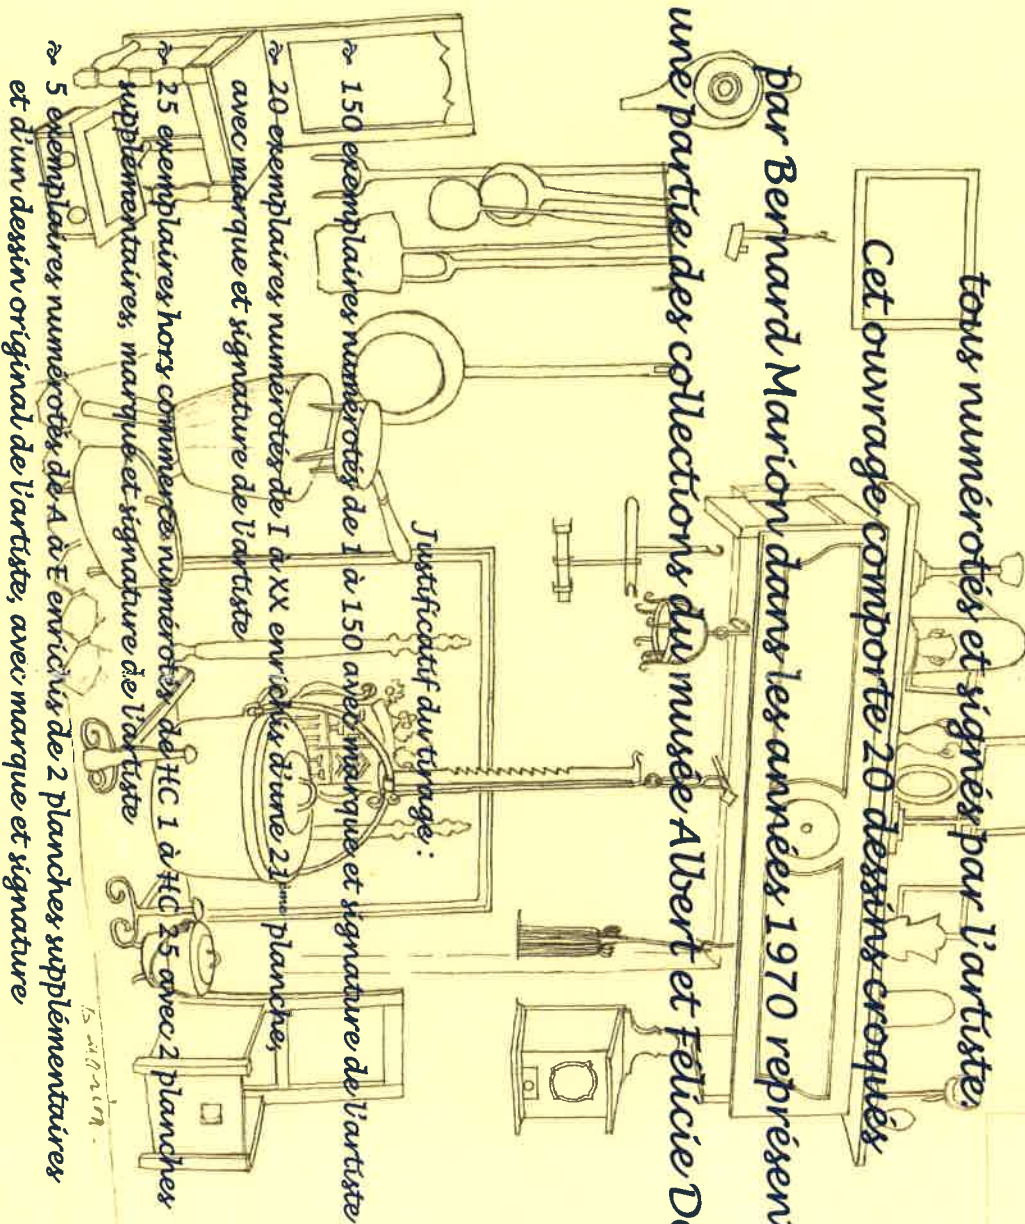 tous numérotés et signés par l'artiste.
Cet ouvrage comporte 20 dessins croqués
par Bernard Marion dans les années 1970 représen
une partie des collections du musée Albert et Félicie De
Justificatif du tirage :
❧ 150 exemplaires numérotés de 1 à 150 avec marque et signature de l'artiste
❧ 20 exemplaires numérotés de I à XX enrichis d'une 21ème planche,
avec marque et signature de l'artiste
❧ 25 exemplaires hors commerce numérotés de HC 1 à HC 25 avec 2 planches
supplémentaires, marque et signature de l'artiste
❧ 5 exemplaires numérotés de A à E enrichis de 2 planches supplémentaires
et d'un dessin original de l'artiste, avec marque et signature